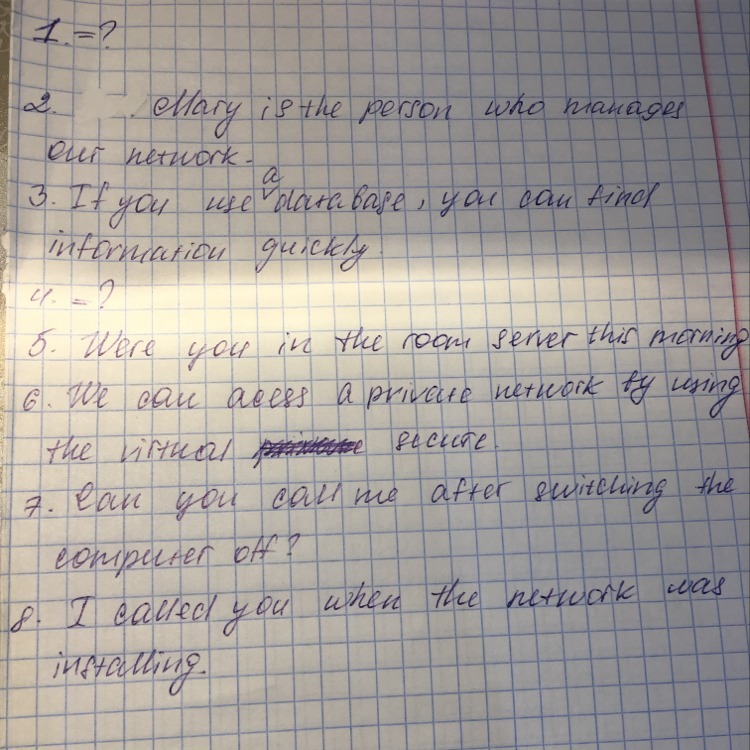 1. =?
2. Mary is the person who manages
our network.
3. If you use a database, you can find
information quickly.
4. =?
5. Were you in the room server this morning
6. We can acess a private network by using
the virtual secure.
7. Can you call me after switching the
computer off?
8. I called you when the network was
installing.